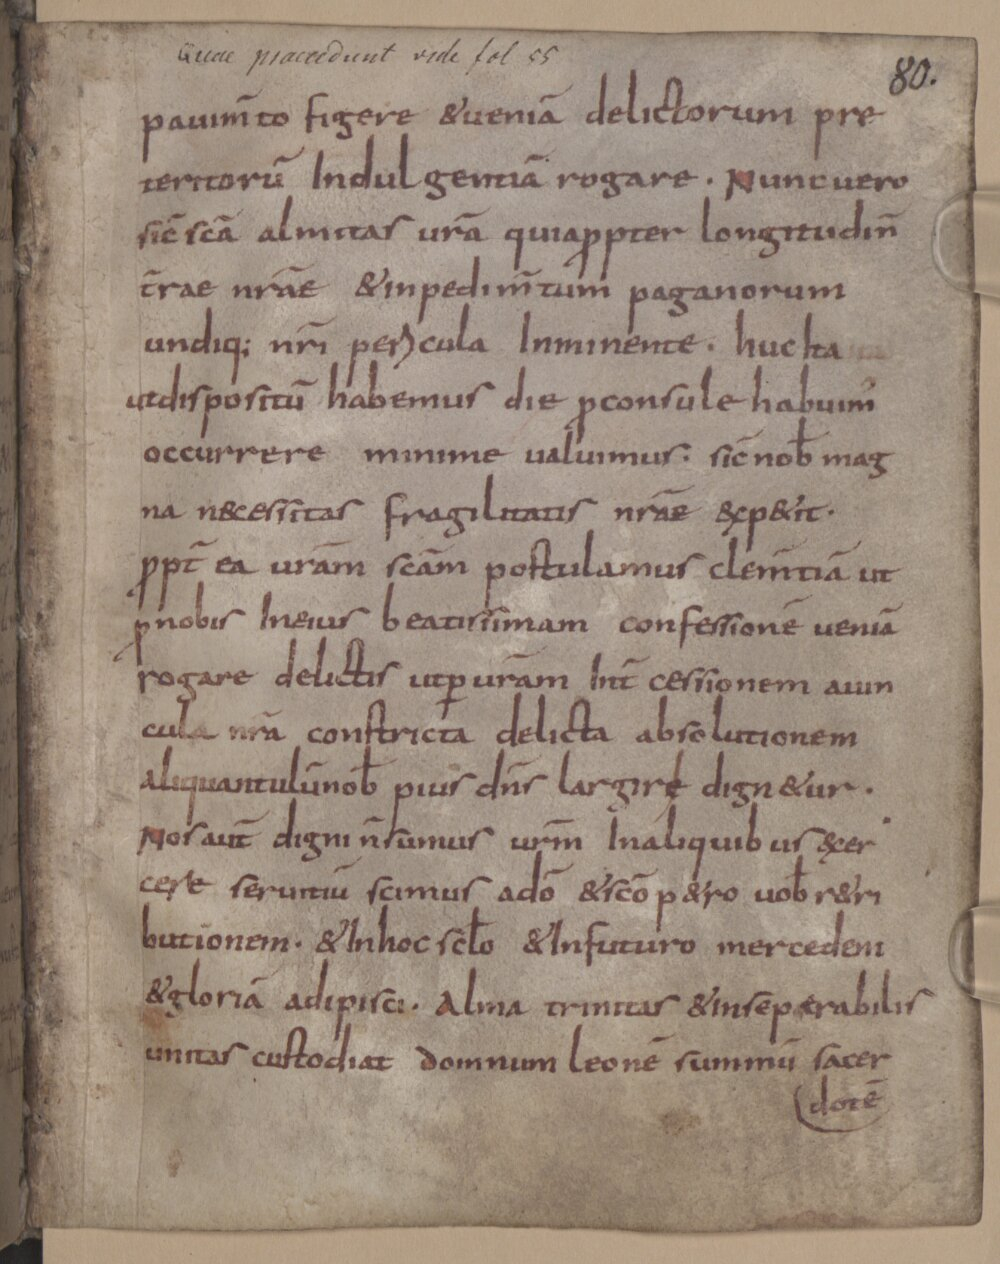 Quae praecedunt vide fol 55
80.
pauim̄to figere &ueniā delictorum pre
teritorū Indulgentiā rogare. Nunc uero
sic̄ sc̄a almitas ur̄a quia ꝓpter longitudin̄
t̄rae nr̄ae &inpedim̄tum paganorum
undiq; nr̄i periculа Inminente. huc Ita
ut disposituū habemus die ꝓconsule habuim̄
occurrere minime ualuimus: sic̄ nob̄ mag
na n&cessitas fragilitatis nr̄ae exp&it.
ꝓpt̄ ea ur̄am sc̄am postulamus clem̄tiā ut
ꝓ nobis Ineius beatissimam confessionē ueniā
rogare delictis ut ꝑ ur̄am Int̄ cessionem auin
cula nr̄a constricta delicta absolutionem
aliquantulū nob̄ pius dn̄s largire dign&ur.
Nos aut̄ digni n̄ sumus ur̄m Inaliquibus exer
cere seruitiū scimus a dō &sc̄o p&ro uob̄ r&ri
butionem. &Inhoc sc̄lo &Infuturo mercedem
&gloriā adipisci. Alma trinitas &inseperabilis
unitas custodiat domnum leonē summū sacer
dotē